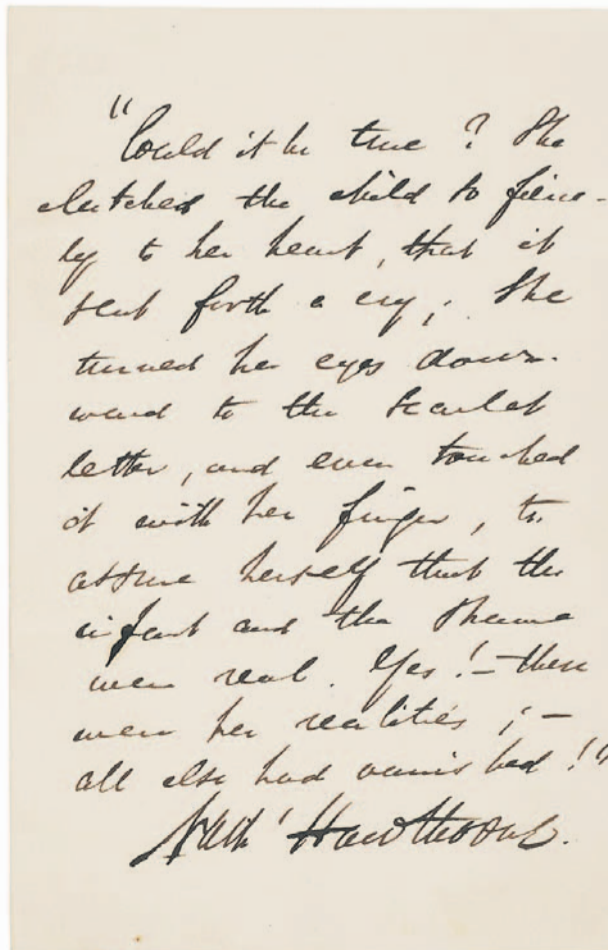 "Could it be true? She
clutched the child so fierce-
ly to her heart, that it
sent forth a cry; She
turned her eyes down-
ward to the scarlet
letter, and even touched
it with her finger, to
assure herself that the
infant and the shame
were real. Yes!—these
were her realities;—
all else had vanished!"
Nath' Hawthorne.